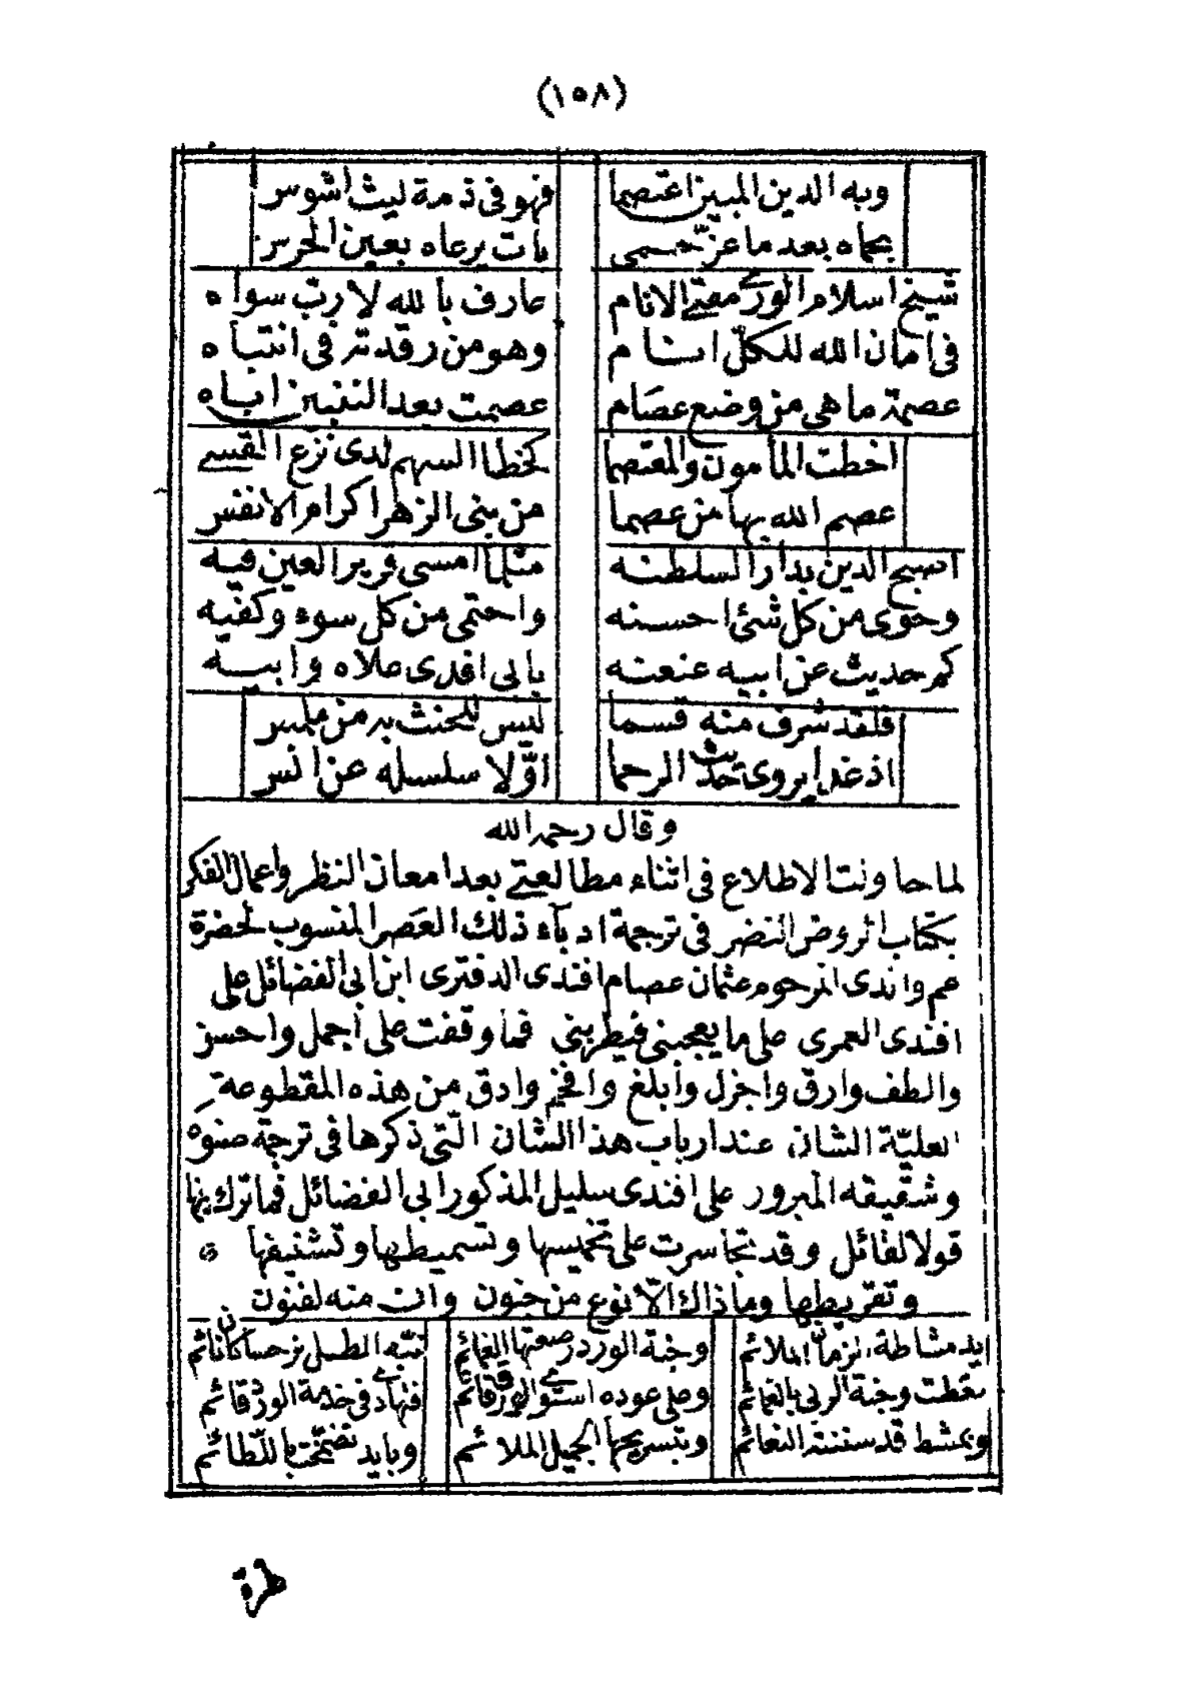 (١٥٨)
وبه الدين المبين اعتصما فهو فى ذمة ليث اشوس
بحماه بعد ما عزّ حمى بات يرعاه بعين الحرس
شيخ اسلام الورى مفتى الانام عارف بالله لا ربّ سواه
فى امان الله للكلّ انام وهو من رقدته فى انتباه
عصمة ما هى من وضع عصام عصمت بعد النبيين اباه
اخطت المأمون والمعتصما كخطا السهم لدى نزع القسى
عصم الله بها من عصما من بنى الزهرا كرام الانفس
اصبح الدين بدار السلطنه مثلما امسى قرير العين فيه
وحوى من كل شئ احسنه واحتمى من كل سوء وكفيه
كم حديث عن ابيه عنعنه بابى افدى علاه وابيه
فلقد شرف منه قسما ليس للحنث به من ملبس
اذ غدا يروى حديث الرحما اوّلا سلسله عن انس
وقال رحمه الله
لما حاونت الاطلاع فى اثناء مطالعتى بعد امعان النظر واعمال الفكر
بكتاب الروض النضر فى ترجمة ادبآء ذلك العصر المنسوب لحضرة
عم والدى المرحوم عثمان عصام افندى الدفترى ابن ابى الفضائل على
افندى العمرى على ما يعجبنى فيطربنى فما وقفت على اجمل واحسن
والطف وارق واجزل وابلغ وافخم وادق من هذه المقطوعة
العليّة الشان عند ارباب هذا الشان الّتى ذكرها فى ترجمة صنوه
وشقيقه المبرور على افندى سليل المذكور ابى الفضائل فما ترك بها
قولا لقائل وقد تجاسرت على تخميسها وتسميطها وتشنيفها
وتقريظها وما ذاك الّا نوع من جنون وانت منه لفنون
يد مشاطة نزمان الملائم وجنة الورد صفعتها الغمائم تنبّه الطل نرجسا كان نائم
نقطت وجنة الربى بالغمائم وعلى عوده استوى الورق قائم فتهادى فى خدمة الورد قائم
وبمشط قد سننته النعائم وبتسريحها الجميل الملائم وبايد تضمّخت باللّطائم
طرة